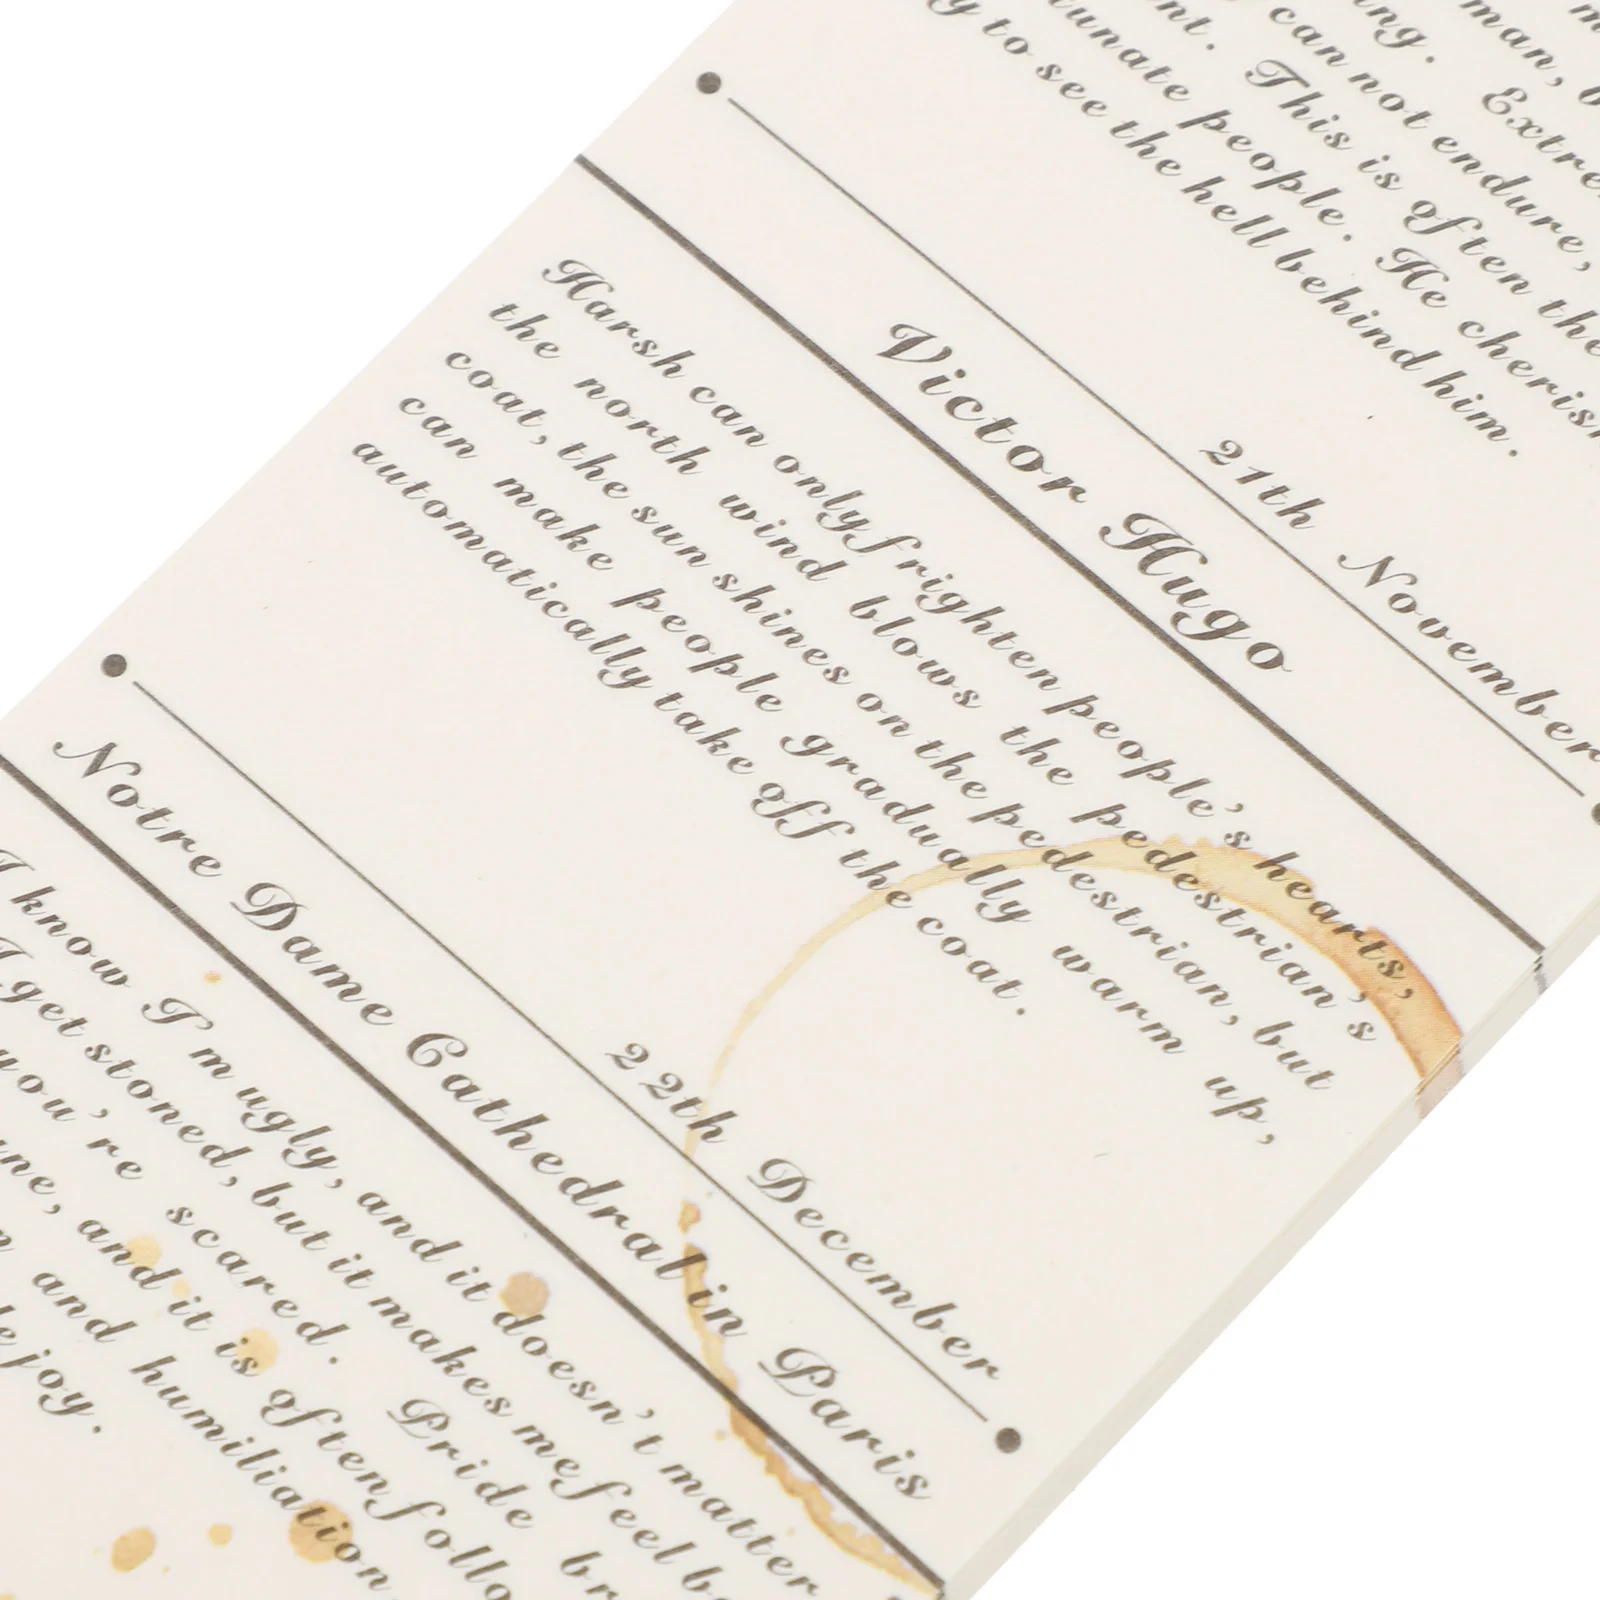 man, b
ng. Extre
can not endure,
nt. This is often the
tunate people. He cherish
y to see the hell behind him.
21th November
Victor Hugo
Harsh can only frighten people's hearts,
the north wind blows the pedestrian's
coat, the sun shines on the pedestrian, but
can make people gradually warm up,
automatically take off the coat.
22th December
Notre Dame Cathedral in Paris
I know I'm ugly, and it doesn't matter
I get stoned, but it makes me feel b
you're scared. Pride br
ne, and it is often follo
and humiliation
joy.